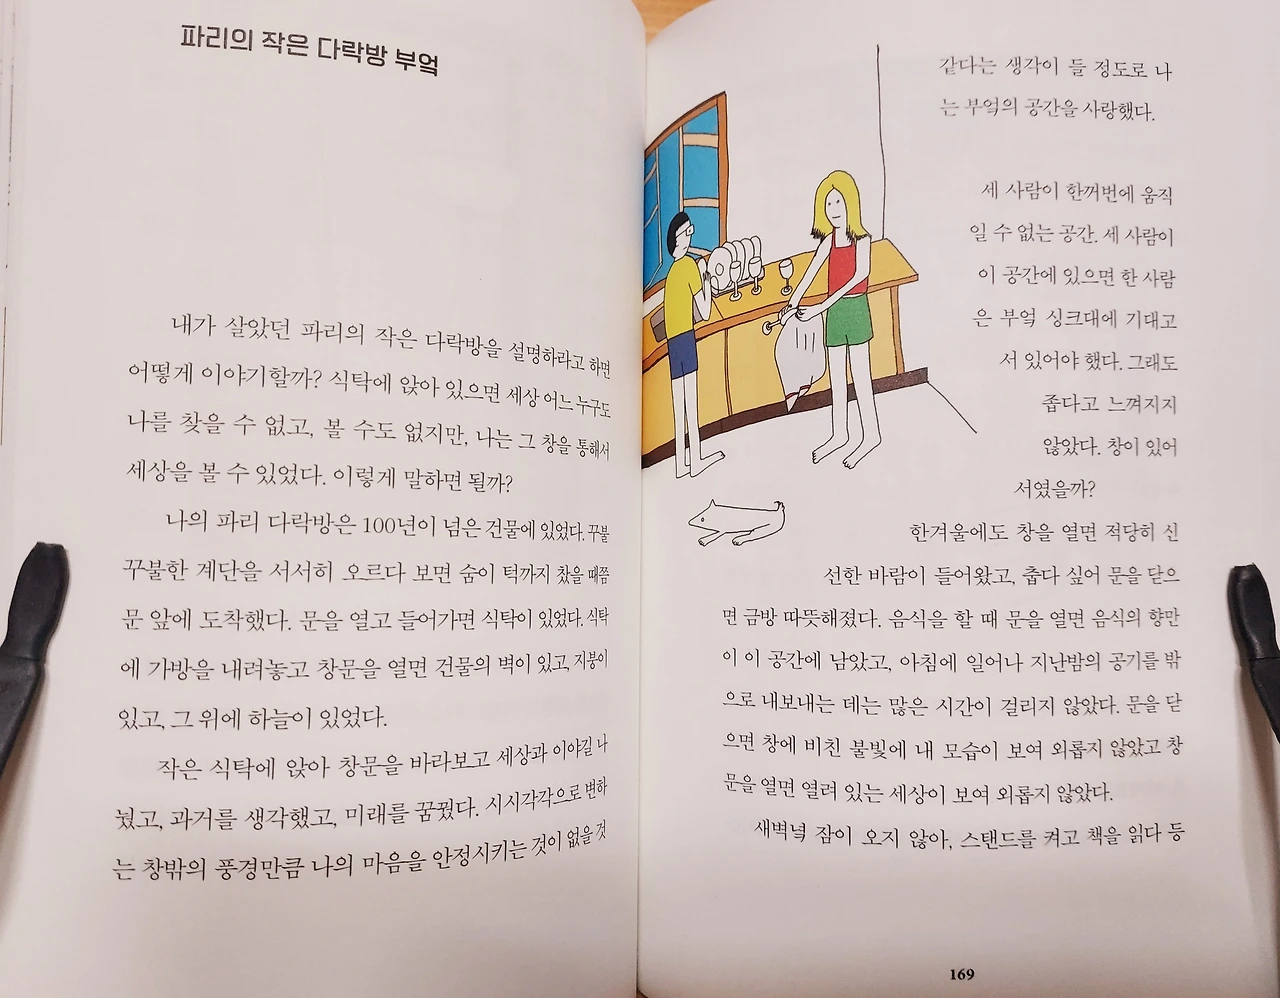 파리의 작은 다락방 부엌
내가 살았던 파리의 작은 다락방을 설명하라고 하면
어떻게 이야기할까? 식탁에 앉아 있으면 세상 어느 누구도
나를 찾을 수 없고, 볼 수도 없지만, 나는 그 창을 통해서
세상을 볼 수 있었다. 이렇게 말하면 될까?
나의 파리 다락방은 100년이 넘은 건물에 있었다. 꾸불
꾸불한 계단을 서서히 오르다 보면 숨이 턱까지 찼을 때쯤
문 앞에 도착했다. 문을 열고 들어가면 식탁이 있었다. 식탁
에 가방을 내려놓고 창문을 열면 건물의 벽이 있고, 지붕이
있고, 그 위에 하늘이 있었다.
작은 식탁에 앉아 창문을 바라보고 세상과 이야길 나
눴고, 과거를 생각했고, 미래를 꿈꿨다. 시시각각으로 변하
는 창밖의 풍경만큼 나의 마음을 안정시키는 것이 없을 것
같다는 생각이 들 정도로 나
는 부엌의 공간을 사랑했다.
세 사람이 한꺼번에 움직
일 수 없는 공간. 세 사람이
이 공간에 있으면 한 사람
은 부엌 싱크대에 기대고
서 있어야 했다. 그래도
좁다고 느껴지지
않았다. 창이 있어
서였을까?
한겨울에도 창을 열면 적당히 신
선한 바람이 들어왔고, 춥다 싶어 문을 닫으
면 금방 따뜻해졌다. 음식을 할 때 문을 열면 음식의 향만
이 이 공간에 남았고, 아침에 일어나 지난밤의 공기를 밖
으로 내보내는 데는 많은 시간이 걸리지 않았다. 문을 닫
으면 창에 비친 불빛에 내 모습이 보여 외롭지 않았고 창
문을 열면 열려 있는 세상이 보여 외롭지 않았다.
새벽녘 잠이 오지 않아, 스탠드를 켜고 책을 읽다 등
169